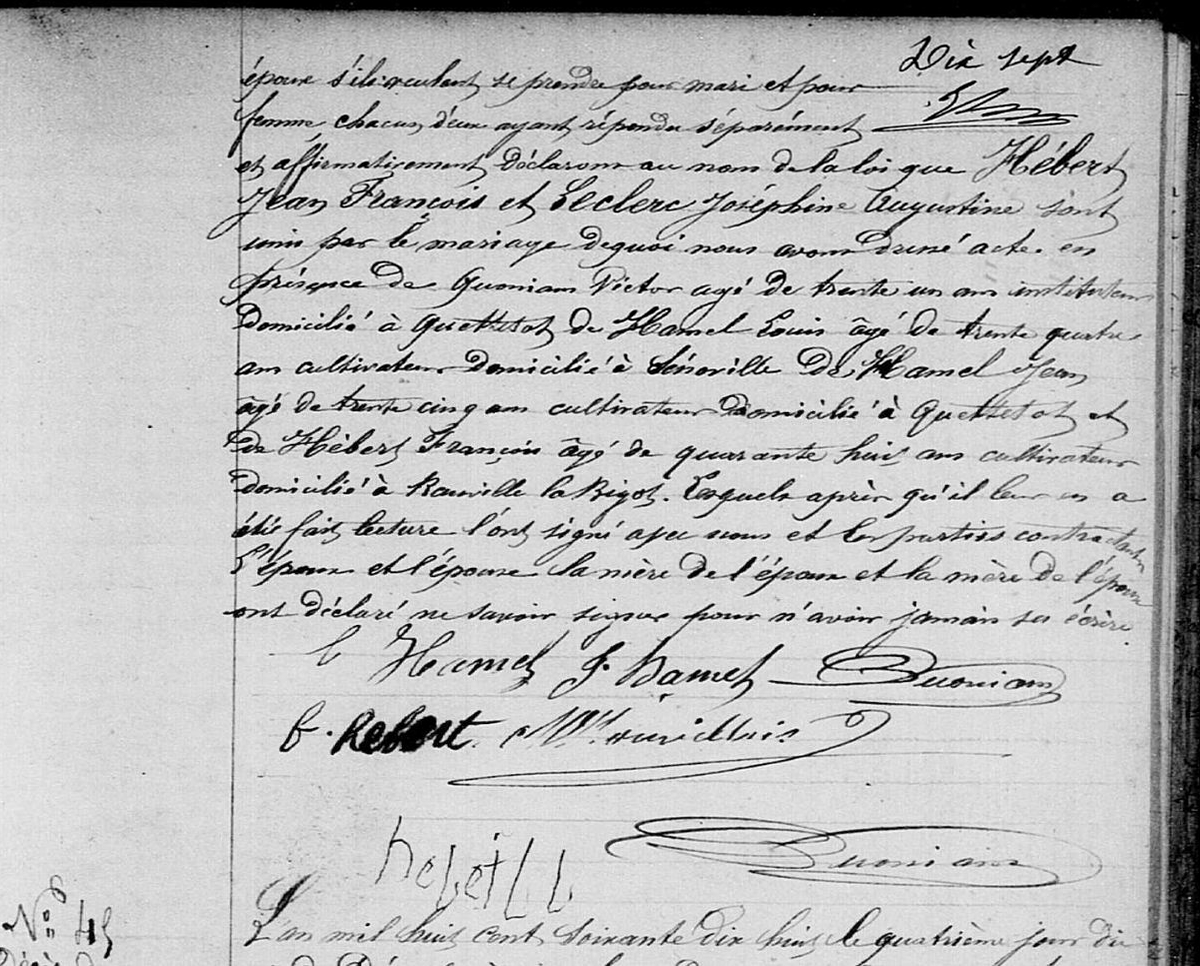 Dix sept
époux s'ils veulent se prendre pour mari et pour
femme chacun d'eux ayant répondu séparément
et affirmativement Déclarons au nom de la loi que Hébert
Jean François et Leclerc Joséphine Augustine sont
unis par le mariage de quoi nous avons dressé acte en
présence de Quoniam Victor agé de trente un ans instituteur
domicilié à Quettetot de Hamel Louis âgé de trente quatre
ans cultivateur Domicilié à Sénoville De Hamel Jean
âgé de trente cinq ans cultivateur Domicilié à Quettetot et
de Hébert François âgé de quarante huit ans cultivateur
domicilié à Rauville la Bigot. Lesquels après qu'il leur en a
été fait lecture l'ont signé avec nous et les parties contractantes
L'époux et l'épouse la mère de l'époux et la mère de l'épouse
ont déclaré ne savoir signer pour n'avoir jamais su écrire.
L Hamel J. hamel Quoniam
f. hebert
Quoniam
N° 45
L'an mil huit cent soixante dix huit le quatrième jour du